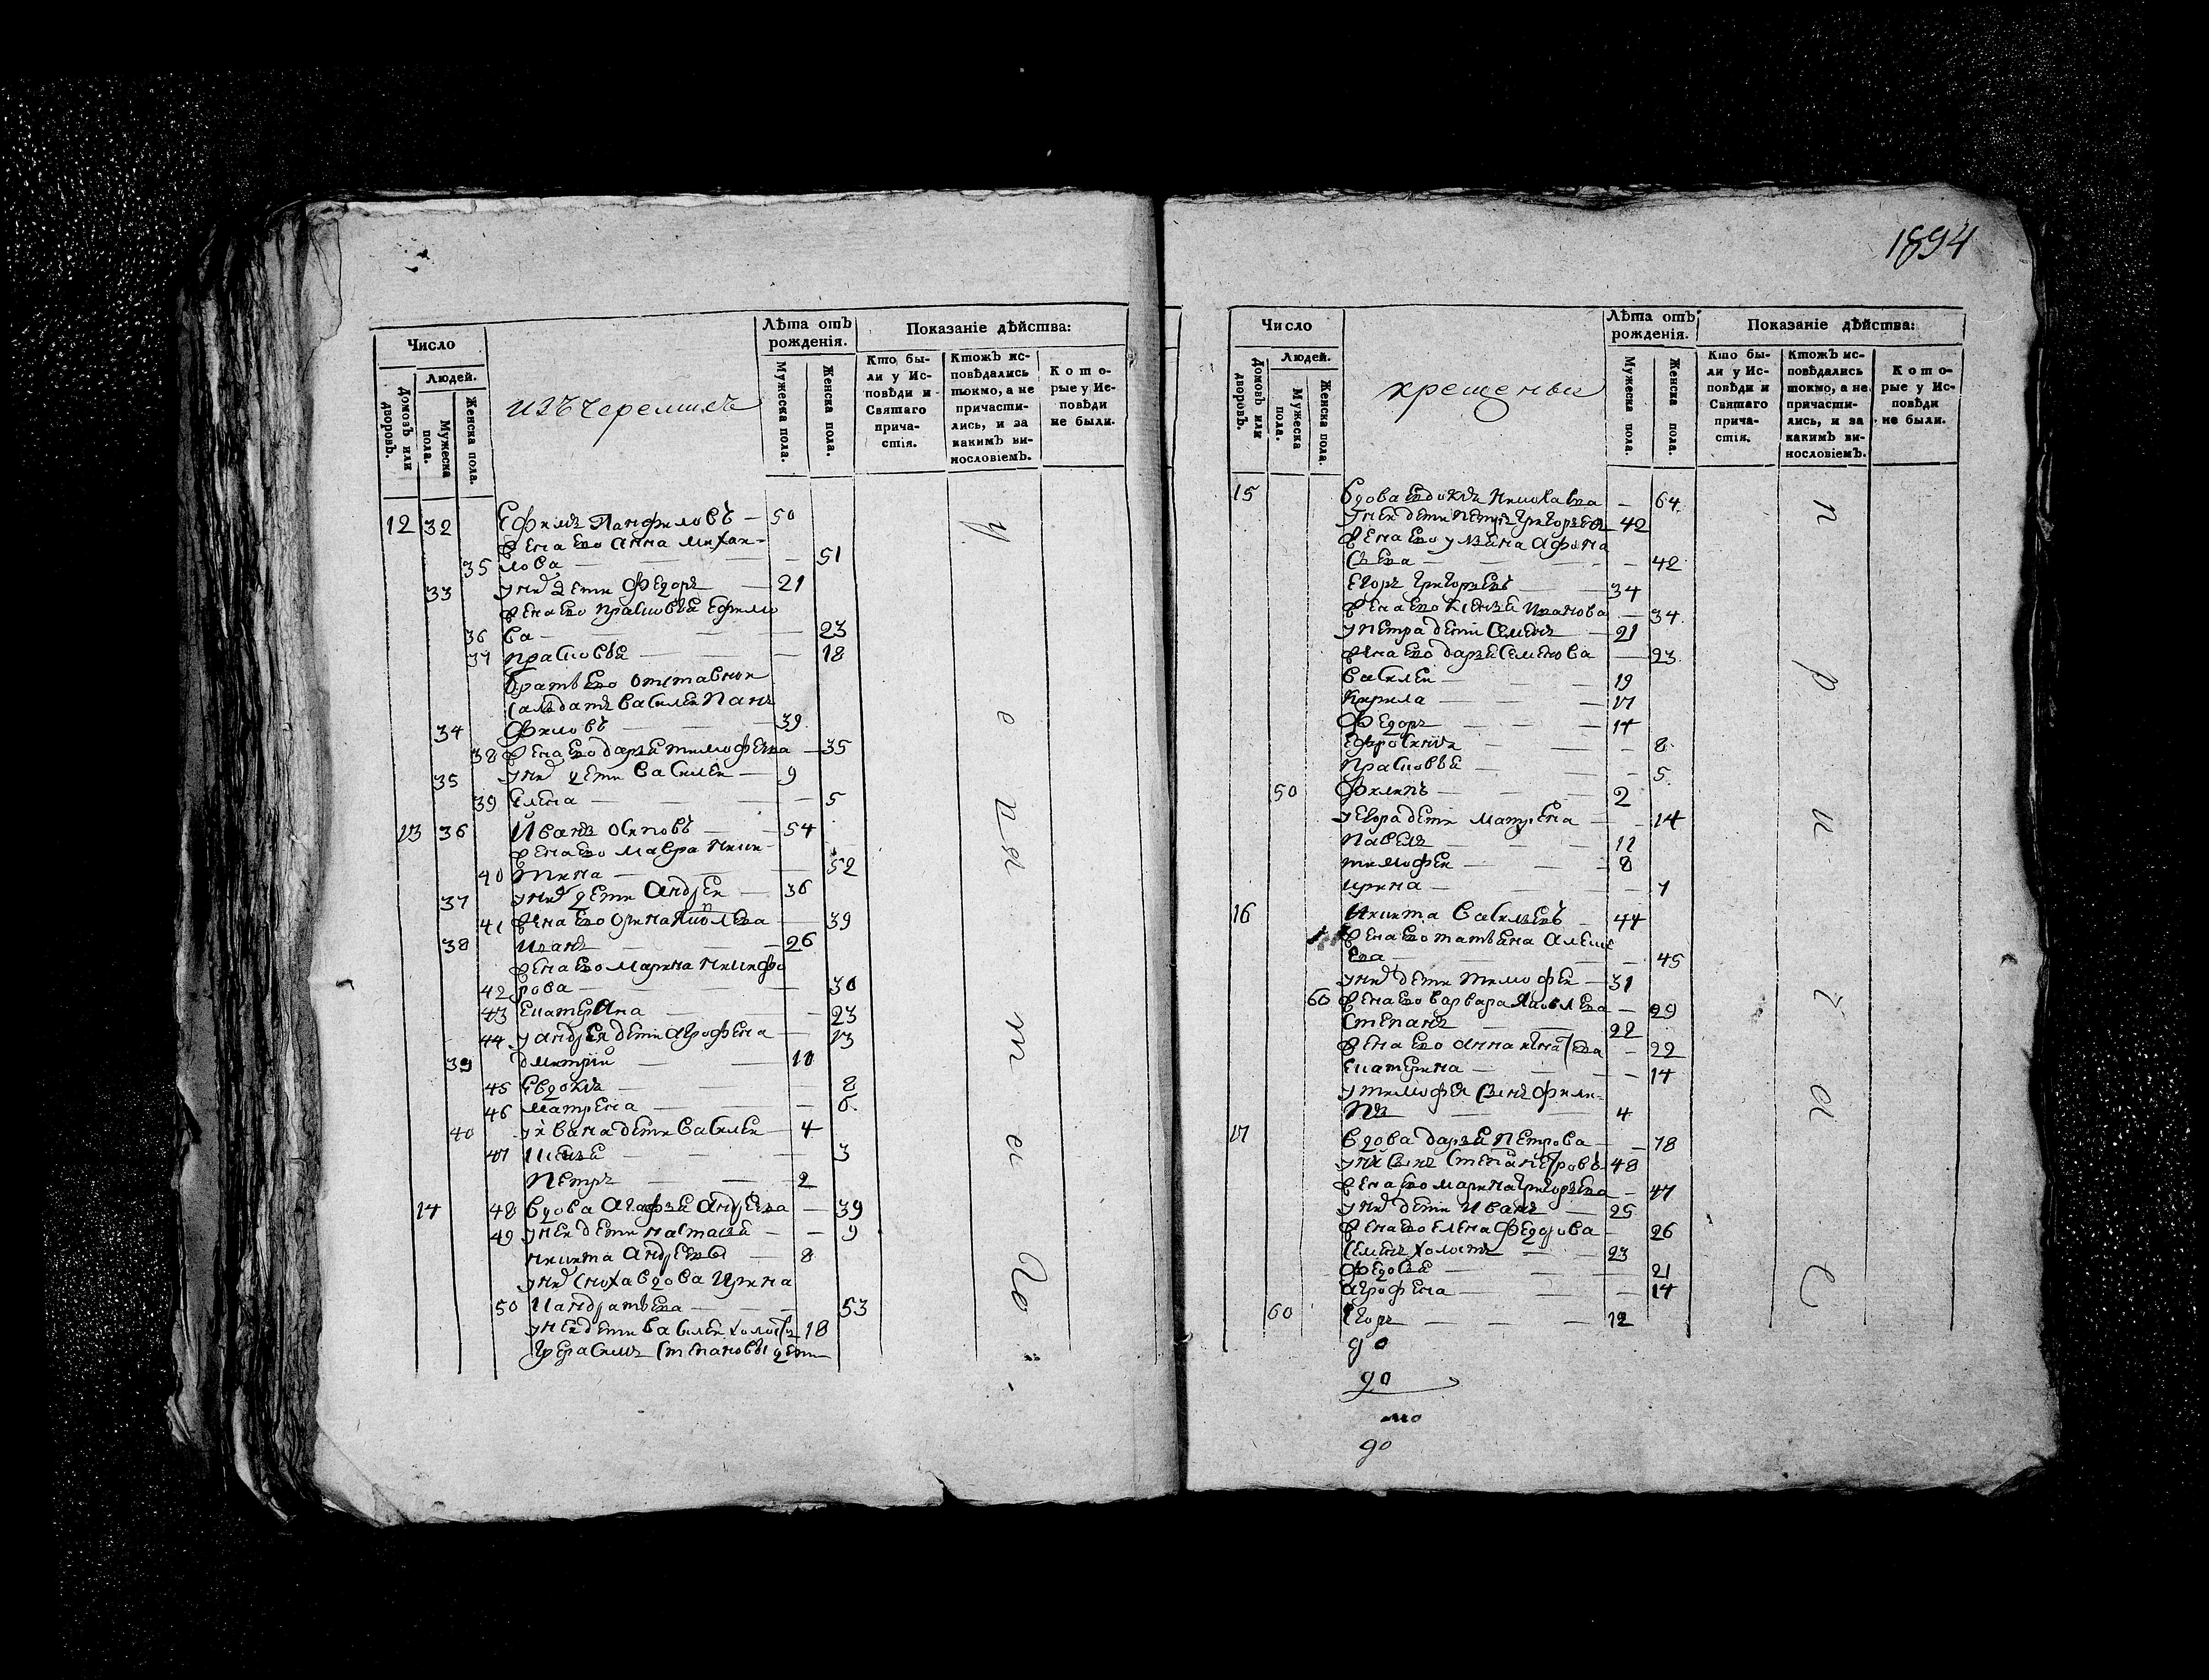 1894
Число
Людей.
Домовъ или дворовъ.
Мужеска пола.
Женска пола.
изъ черемисъ
Лѣта отъ рожденія.
Мужеска пола.
Женска пола.
Показаніе дѣйства:
Кто бы-
ли у Ис-
повѣди и
Святаго
прича-
стія.
Ктожъ ис-
повѣдались
токмо, а не
причасти-
лись, и за
какимъ ви-
нословіемъ.
Кото-
рые у Ис-
повѣди
не были.
12 32 Ефимъ Панфиловъ — 50
жена ево Анна Михаи-
35 лова — 51
33 у них дети Федоръ — 21
жена ево Прасковья Ефимо
36 ва — 23
37 Прасковья — 18
братъ ево отставной
салдатъ Василей Пан
34 филовъ — 39
38 жена ево Дарья Тимофеева — 35
35 у них дети Василей — 9
39 Елена — 5
13 36 Иванъ Осиповъ — 54
жена ево Мавра Ники-
40 тина — 52
37 у них дети Андрей — 36
41 жена ево Орина — 39
38 Иванъ — 26
жена ево Марина Никифо
42 рова — 30
43 Екатерина — 23
44 у Андрея дети Агрофена — 13
39 Дмитрий — 10
45 Евдокия — 8
46 Матрена — 6
40 у Ивана дети Василей — 4
47 — 3
Петръ — 2
14 48 вдова Агафья Андреева — 39
49 у ней дети Настасья — 9
Никита Андреевы — 8
у них сноха вдова Ирина
50 Кандратьева — 53
у ней дети Василей холостъ 18
Герасимъ Степановы дети
у
с
п
я
т
и
Число
Людей.
Домовъ или дворовъ.
Мужеска пола.
Женска пола.
крещены
Лѣта отъ рожденія.
Мужеска пола.
Женска пола.
Показаніе дѣйства:
Кто бы-
ли у Ис-
повѣди и
Святаго
прича-
стія.
Ктожъ ис-
повѣдались
токмо, а не
причасти-
лись, и за
какимъ ви-
нословіемъ.
Кото-
рые у Ис-
повѣди
не были.
15 вдова Евдокия Николаева — 64
у ней дети Петръ Григорьевъ 42
жена ево Ульяна Афона
сьева — 42
Егоръ Григорьевъ — 34
жена ево Ксенья Иванова — 34
у Петра дети Семенъ — 21
жена ево Дарья Семенова — 23
Василей — 19
Кирила — 17
Федоръ — 14
Ефросинья — 8
Прасковья — 5
50 Филипъ — 2
у Егора дети Матрена — 14
Павелъ — 11
Тимофей — 8
Ирина — 7
16 Никита Васильевъ — 44
жена ево Татьяна Алексе
ева — 45
у них дети Тимофей — 31
60 жена ево Варвара Яковлева — 29
Степанъ — 22
жена ево Анна — 22
Екатерина — 14
у Тимофея сынъ Фили-
пъ — 4
17 вдова Дарья Петрова — 78
у ней сынъ Степанъ 48
жена ево Марина Григорьева — 47
у них дети Иванъ — 25
жена ево Елена Федорова — 26
Семенъ холостъ — 23
Федосья — 21
Агрофена — 14
60 Егоръ — 12
п
р
и
ч
а
с